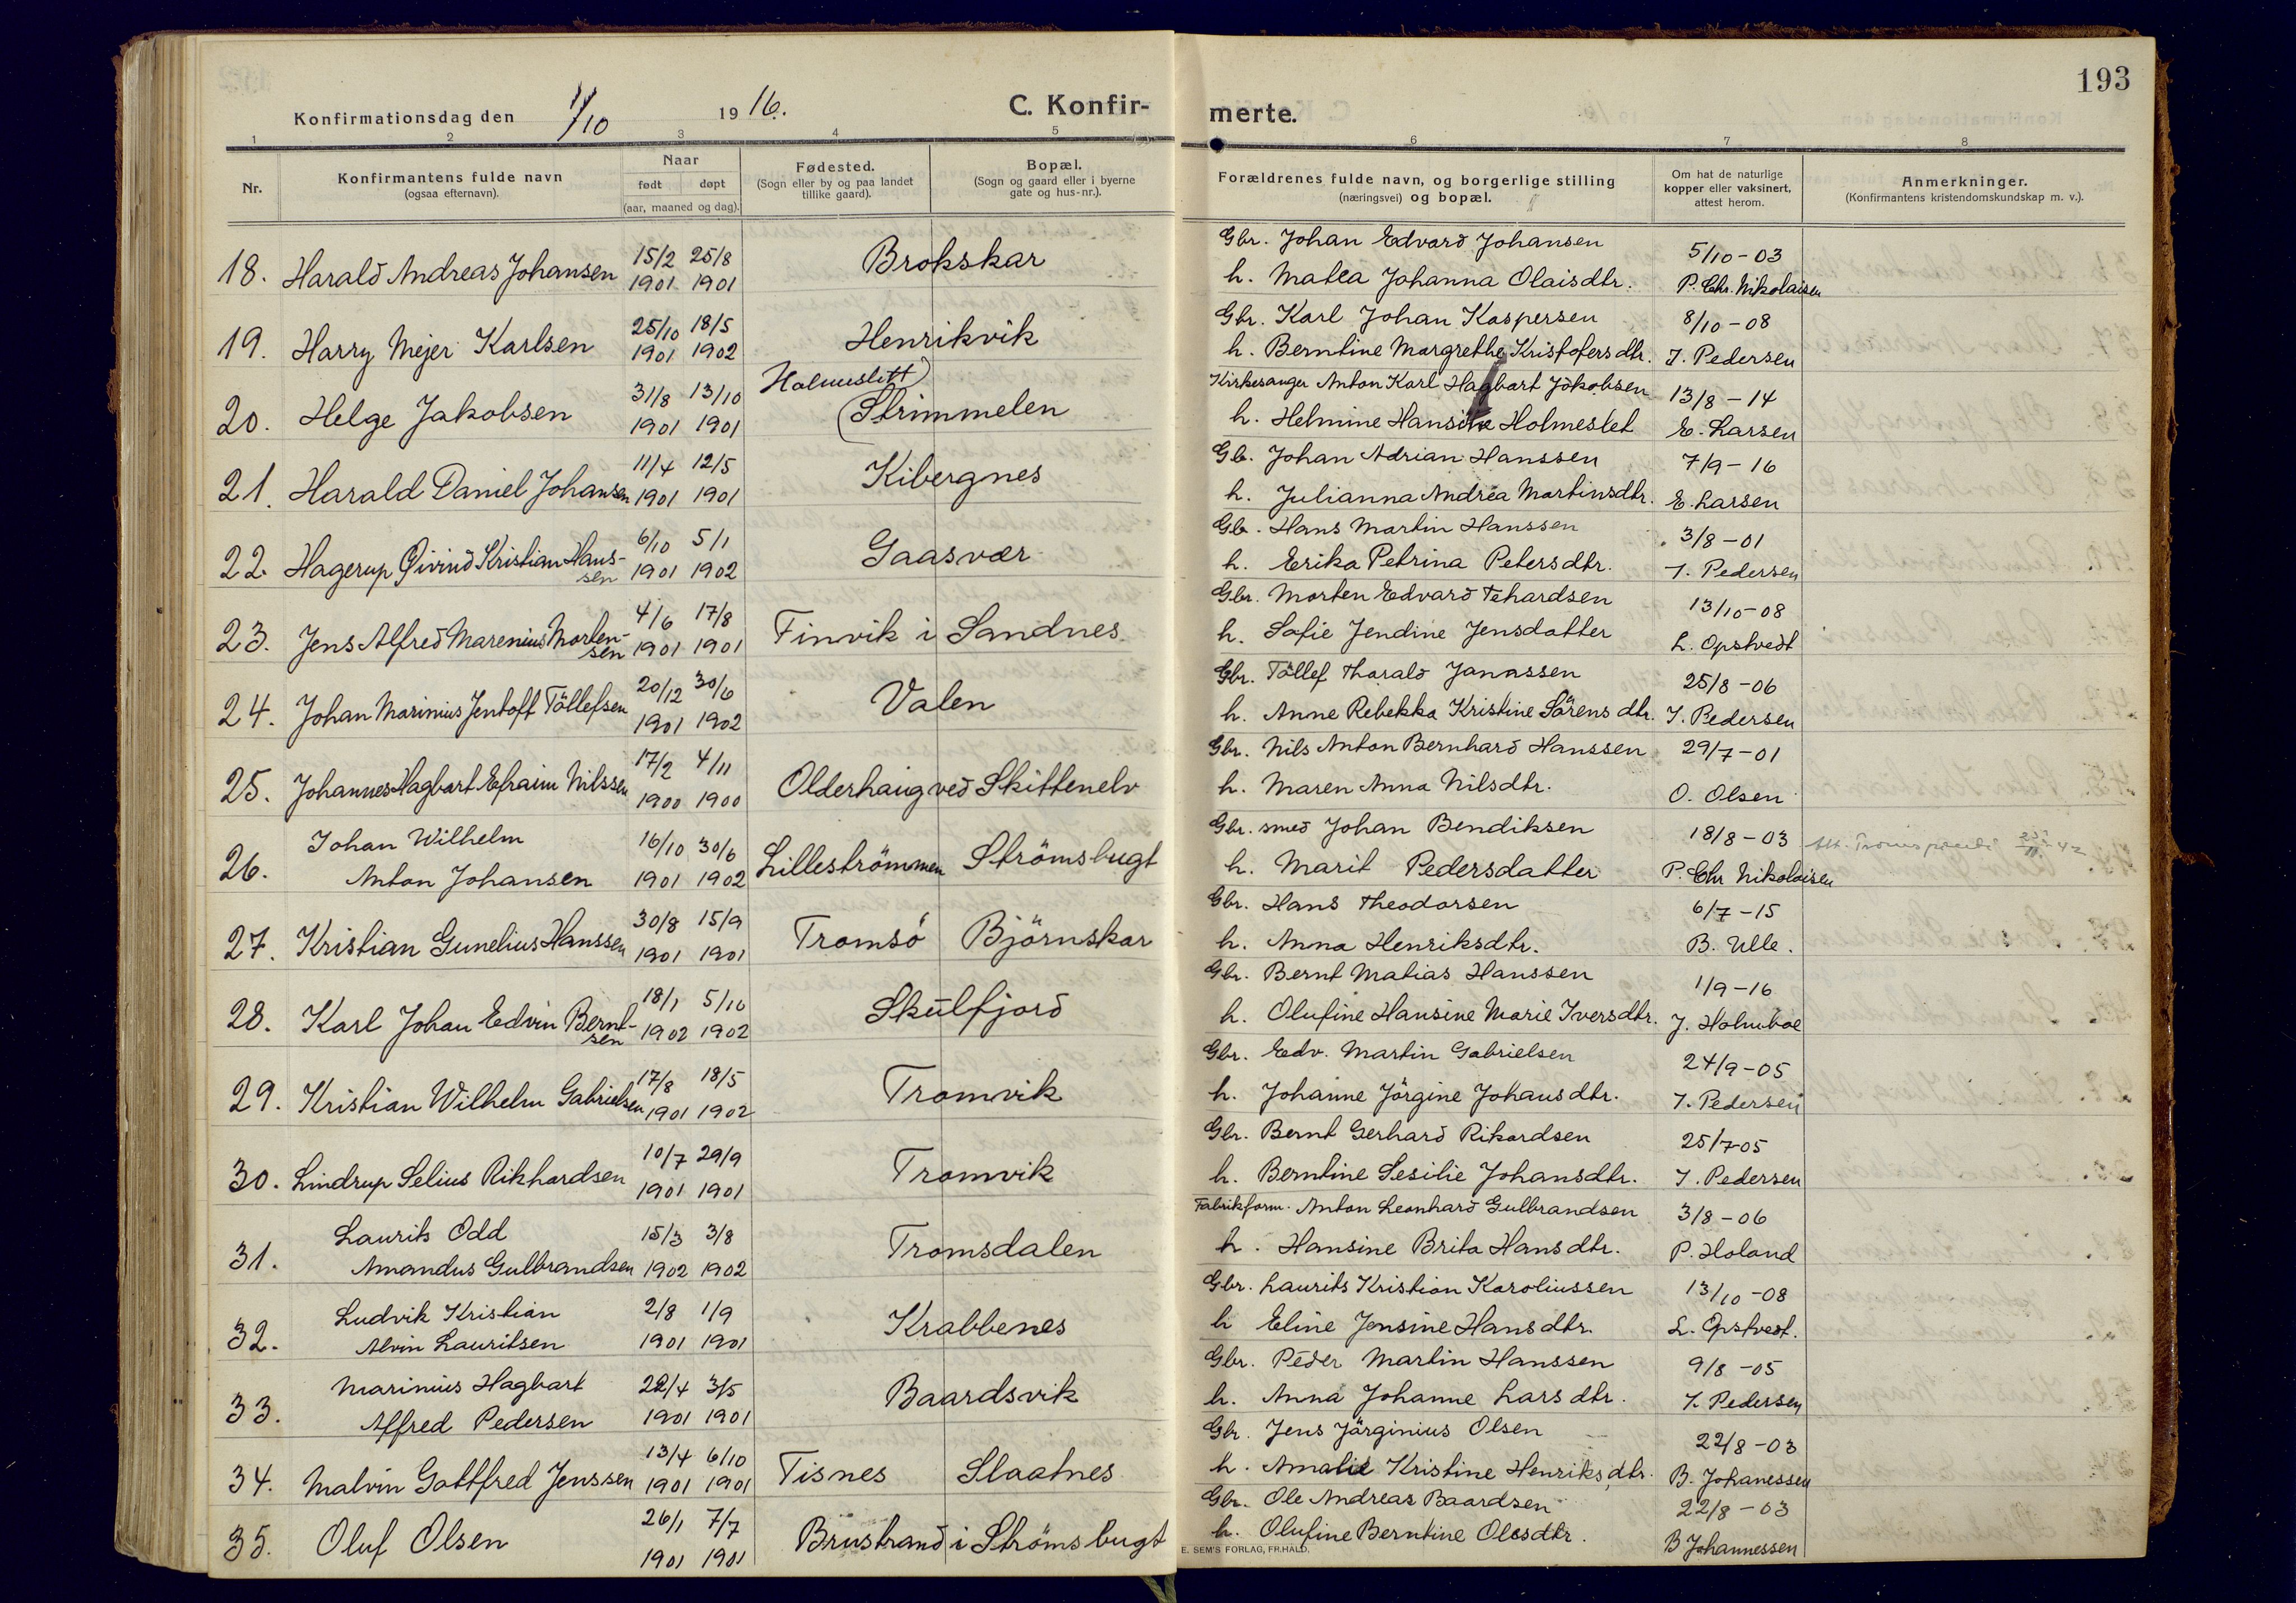 193
Konfirmationsdag den 1/10 1916. C. Konfir- merte.
1 2 3 4 5 6 7 8
Nr.
Konfirmantens fulde navn
(ogsaa efternavn).
Naar
født døpt
(aar, maaned og dag).
Fødested.
(Sogn eller by og paa landet
tillike gaard).
Bopæl.
(Sogn og gaard eller i byerne
gate og hus-nr.).
Forældrenes fulde navn, og borgerlige stilling
(næringsvei) og bopæl.
Om hat de naturlige
kopper eller vaksinert,
attest herom.
Anmerkninger.
(Konfirmantens kristendomskundskap m. v.).
18. Harald Andreas Johansen 15/2 1901 25/8 1901 Brokskar
Gbr. Johan Edvard Johansen 5/10-03
h. Matea Johanna Olaisdtr. P. Chr. Nikolaisen
19. Harry Mejer Karlsen 25/10 1901 18/5 1902 Henrikvik
Gbr. Karl Johan Kaspersen 8/10-08
h. Berntine Margrethe Kristofersdtr. J. Pedersen
20. Helge Jakobsen 31/8 1901 13/10 1901 Holmeslett (Strimmelen
Kirkesanger Anton Karl Hagbart Jakobsen 13/8-14
h. Helmine Hansine Holmeslet E. Larsen
21. Harald Daniel Johansen 11/4 1901 12/5 1901 Kibergnes
Gb. Johan Adrian Hanssen 7/9-16
h. Julianna Andrea Martinsdtr. E. Larsen
22. Hagerup Øivind Kristian Hans-
sen 6/10 1901 5/1 1902 Gaasvær
Gb. Hans Martin Hanssen 3/8-01
h. Erika Petrina Petersdtr. J. Pedersen
23. Jens Alfred Marenius Morten-
sen 4/6 1901 17/8 1901 Finvik i Sandnes
Gbr. Morten Edvard Tehardsen 13/10-08
h. Sofie Jendine Jensdatter L. Opstvedt
24. Johan Marinius Jentoft Töllefsen 20/12 1901 30/6 1902 Valen
Gbr. Töllef Tharald Janassen 25/8-06
h. Anne Rebekka Kristine Sörensdtr. J. Pedersen
25. Johannes Hagbart Efraim Nilssen 17/2 1900 4/11 1900 Olderhaug ved Skittenelv
Gbr. Nils Anton Bernhard Hanssen 29/7-01
h. Maren Anna Nilsdtr. O. Olsen
26. Johan Wilhelm
Anton Johansen 16/10 1901 30/6 1902 Lilleströmmen Strömsbugt
Gbr. smed Johan Bendiksen 18/8-03
h. Marit Pedersdatter P. Chr Nikolaisen
27. Kristian Gunelius Hanssen 30/8 1901 15/9 1901 Tromsö Björnskar
Gbr. Hans Theodorsen 6/7-15
h. Anna Henriksdtr. B. Ulle.
28. Karl Johan Edvin Bernt-
sen 18/1 1902 5/10 1902 Skulfjord
Gbr. Bernt Matias Hanssen 1/9-16
h. Olufine Hansine Marie Iversdtr. J. Holmboe
29. Kristian Wilhelm Gabrielsen 17/8 1901 18/5 1902 Tromvik
Gbr. Edv. Martin Gabrielsen 24/9-05
h. Johanne Jörgine Johansdtr. J. Pedersen
30. Lindrup Selius Rikhardsen 10/7 1901 29/9 1901 Tromvik
Gbr. Bernt Gerhard Rikardsen 25/7-05
h. Berntine Sesilie Johansdtr. J. Pedersen
31. Laurits Odd
Amandus Gulbrandsen 15/3 1902 3/8 1902 Tromsdalen
Fabrikform. Anton Leonhard Gulbrandsen 3/8-06
h. Hansine Brita Hansdtr. P. Holand
32. Ludvik Kristian
Alvin Lauritsen 2/8 1901 1/9 1901 Krabbenes
Gbr. Laurits Kristian Karoliussen 13/10-08
h Eline Jensine Hansdtr. L. Opstvedt.
33. Marinius Hagbart
Alfred Pedersen 22/4 1901 3/5 1901 Baardsvik
Gbr. Peder Martin Hanssen 9/8-05
h. Anna Johanne Larsdtr. J. Pedersen
34. Malvin Gottfred Jenssen 13/4 1901 6/10 1901 Tisnes Slaatnes
Gbr. Jens Järginius Olsen 22/8-03
h. Amalie Kristine Henriksdtr. B. Johanessen
35. Oluf Olsen 26/1 1901 7/7 1901 Brustrand i Strömsbugt
Gbr. Ole Andreas Baardsen 22/8-03
h. Olufine Berntine Olesdtr. B Johannessen
E. SEM'S FORLAG, FR.HALD.